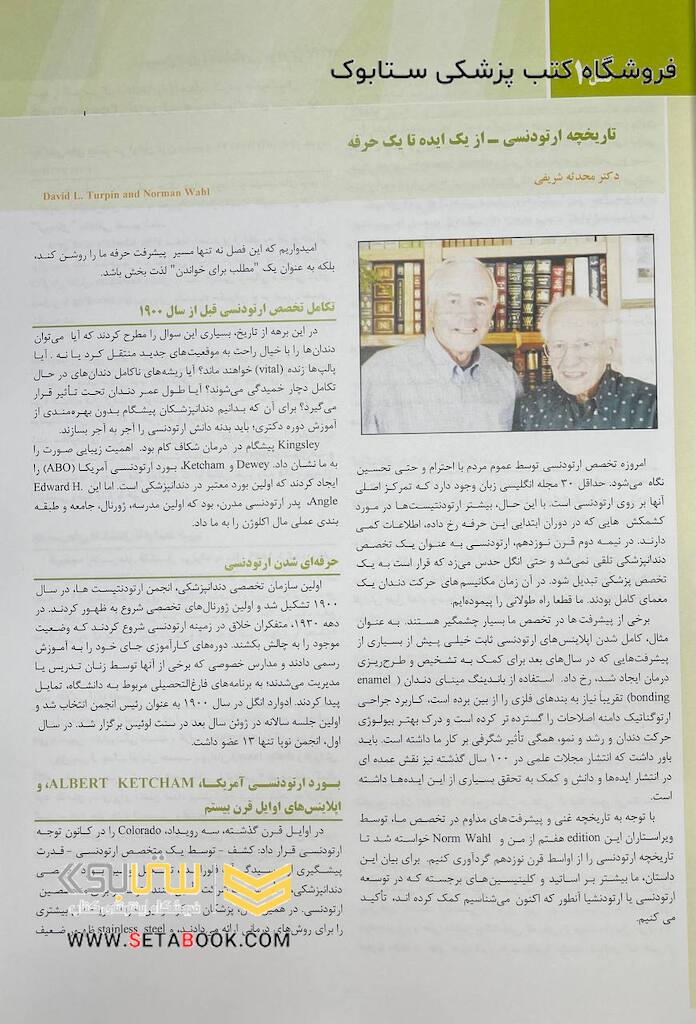 فروشگاه کتب پزشکی ستابوک
تاریخچه ارتودنسی – از یک ایده تا یک حرفه
دکتر محدثه شریفی
David L. Turpin and Norman Wahl
امروزه تخصص ارتودنسی توسط عموم مردم با احترام و حتی تحسین
نگاه می‌شود. حداقل ۳۰ مجله انگلیسی زبان وجود دارد که تمرکز اصلی
آنها بر روی ارتودنسی است. با این حال، بیشتر ارتودنتیست‌ها در مورد
کشمکش هایی که در دوران ابتدایی این حرفه رخ داده، اطلاعات کمی
دارند. در نیمه دوم قرن نوزدهم، ارتودنسی به عنوان یک تخصص
دندانپزشکی تلقی نمی‌شد و حتی انگل حدس می‌زد که قرار است به یک
تخصص پزشکی تبدیل شود. در آن زمان مکانیسم‌های حرکت دندان یک
معمای کامل بودند. ما قطعا راه طولانی را پیموده‌ایم.
برخی از پیشرفت ها در تخصص ما بسیار چشمگیر هستند. به عنوان
مثال، کامل شدن اپلاینس‌های ارتودنسی ثابت خیلی پیش از بسیاری از
پیشرفت‌هایی که در سال‌های بعد برای کمک به تشخیص و طرح‌ریزی
درمان ایجاد شد، رخ داد. استفاده از باندینگ مینای دندان ( enamel
bonding) تقریباً نیاز به بندهای فلزی را از بین برده است، کاربرد جراحی
ارتوگناتیک دامنه اصلاحات را گسترده تر کرده است و درک بهتر بیولوژی
حرکت دندان و رشد و نمو، همگی تأثیر شگرفی بر کار ما داشته است. باید
باور داشت که انتشار مجلات علمی در ۱۰۰ سال گذشته نیز نقش عمده ای
در انتشار ایده‌ها و دانش و کمک به تحقق بسیاری از این ایده‌ها داشته
است.
با توجه به تاریخچه غنی و پیشرفت‌های مداوم در تخصص ما، توسط
ویراستاران این edition هفتم از من و Norm Wahl خواسته شد تا
تاریخچه ارتودنسی را از اواسط قرن نوزدهم گردآوری کنیم. برای بیان این
داستان، ما بیشتر بر اساتید و کلینیسین‌های برجسته که در توسعه
ارتودنسی یا ارتودنشیا آنطور که اکنون می‌شناسیم کمک کرده اند، تأکید
می کنیم.
امیدواریم که این فصل نه تنها مسیر پیشرفت حرفه ما را روشن کند،
بلکه به عنوان یک "مطلب برای خواندن" لذت بخش باشد.
تکامل تخصص ارتودنسی قبل از سال ۱۹۰۰
در این برهه از تاریخ، بسیاری این سوال را مطرح کردند که آیا می‌توان
دندان‌ها را با خیال راحت به موقعیت‌های جدید منتقل کرد یا نه . آیا
پالپ‌ها زنده (vital) خواهند ماند؟ آیا ریشه‌های ناکامل دندان‌های در حال
تکامل دچار خمیدگی می‌شوند؟ آیا طول عمر دندان تحت تأثیر قرار
می‌گیرد؟ برای آن که بدانیم دندانپزشکان پیشگام بدون بهره‌مندی از
آموزش دوره دکتری؛ باید بدنه دانش ارتودنسی را آجر به آجر بسازند.
Kingsley پیشگام در درمان شکاف کام بود. اهمیت زیبایی صورت را
به ما نشان داد. Dewey و Ketcham، بورد ارتودنسی آمریکا (ABO) را
ایجاد کردند که اولین بورد معتبر در دندانپزشکی است. اما این Edward H.
Angle، پدر ارتودنسی مدرن، بود که اولین مدرسه، ژورنال، جامعه و طبقه
بندی عملی مال اکلوژن را به ما داد.
حرفه‌ای شدن ارتودنسی
اولین سازمان تخصصی دندانپزشکی، انجمن ارتودنتیست ها، در سال
۱۹۰۰ تشکیل شد و اولین ژورنال‌های تخصصی شروع به ظهور کردند. در
دهه ۱۹۳۰، متفکران خلاق در زمینه ارتودنسی شروع کردند که وضعیت
موجود را به چالش بکشند. دوره‌های کارآموزی جای خود را به آموزش
رسمی دادند و مدارس خصوصی که برخی از آنها توسط زنان تدریس یا
مدیریت می‌شدند؛ به برنامه‌های فارغ‌التحصیلی مربوط به دانشگاه، تمایل
پیدا کردند. ادوارد انگل در سال ۱۹۰۰ به عنوان رئیس انجمن انتخاب شد و
اولین جلسه سالانه در ژوئن سال بعد در سنت لوئیس برگزار شد. در سال
اول، انجمن نوپا تنها ۱۳ عضو داشت.
بورد ارتودنسی آمریکا، ALBERT KETCHAM، و
اپلاینس‌های اوایل قرن بیستم
در اوایل قرن گذشته، سه رویداد، Colorado را در کانون توجه
ارتودنسی قرار داد: کشف - توسط یک متخصص ارتودنسی - قدرت
پیشگیری از
دندانپزشکی
ارتودنسی. در همین بیشتری
را برای روش‌های درمانی ارائه می‌دادند، و stainless steel ضعیف
ستابوک
فروشگاه اینترنتی کتاب
WWW.SETABOOK.COM